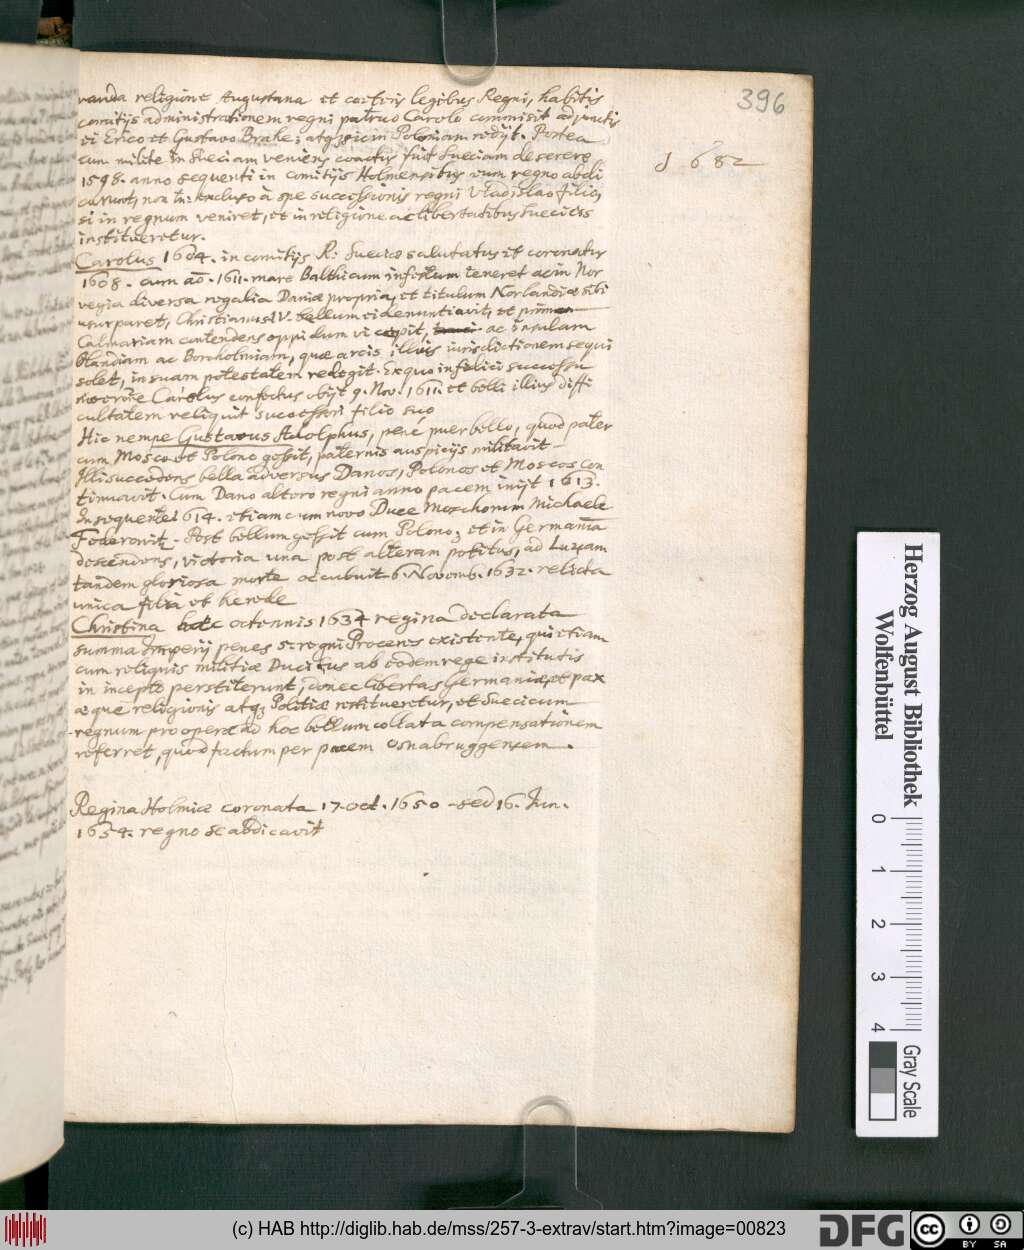 396
randa religione Augustana et caeteris legibus Regni, habitis
comitijs administrationem regni patruo Carolo commisit adjunctis
ei Erico et Gustavo Brahe; atq; sic in Poloniam redijt. Postea
cum milite in Sueciam veniens coactus fuit Sueciam deserere
1598. anno sequenti in comitijs Holmensibus eum regno abdi
carunt, non tn: excluso à spe successionis regni Vladislao filio,
si in regnum veniret, et in religione ac libertatibus Sueciis
institueretur.
1682
Carolus 1604. in comitijs R: Sueciae salutatus et coronatus
1608. cum aō. 1611. mare Balthicum infestum teneret ac in Nor
vegia diversa regalia Daniae propria, et titulum Norlandiae sibi
usurparet, Christianus IV. bellum ei denuntiavit, et
Calmariam contendens oppidum vi cepit, ac insulam
Olandiam ac Borcholmiam, quae arcis illius iurisdictionem sequi
solet, in suam potestatem redegit. Ex quo infelici successu
moerore Carolus confectus obijt 9. Nov. 1611. et belli illius diffi
cultatem reliquit successori filio suo
Hic nempe Gustavus Adolphus, penè puer bello, quod pater
cum Mosco et Polono gessit, paternis auspicijs militavit
Illi succedens bella adversus Danos, Polonos et Moscos con
tinuavit. Cum Dano altero regni anno pacem inijt 1613.
In sequenti 1614. etiam cum novo Duce Moschorum Michaele
Foderovitz. Post bellum gessit cum Polono, et in Germania
descendens, victoria una post alteram potitus, ad Luzam
tandem gloriosa morte occubuit 6. Novemb. 1632. relicta
unica filia et herede
Christina haec octennis 1634 regina declarata
summa Imperij penes 5. regni Proceres existente, qui etiam
cum reliquis militiae Ducibus ab eodem rege institutis
in incepto perstiterunt, donec libertas Germaniae, et pax
aeque religionis atq; Politiae restitueretur, et Suecicum
regnum pro opera ad hoc bellum collata compensationem
referret, quod factum per pacem Osnabruggensem.
Regina Holmiae coronata 17. oct. 1650. sed 16. Jun.
1654. regno se abdicavit
Herzog August Bibliothek
Wolfenbüttel
0 1 2 3 4
Gray Scale
(c) HAB http://diglib.hab.de/mss/257-3-extrav/start.htm?image=00823
DFG
cc BY SA